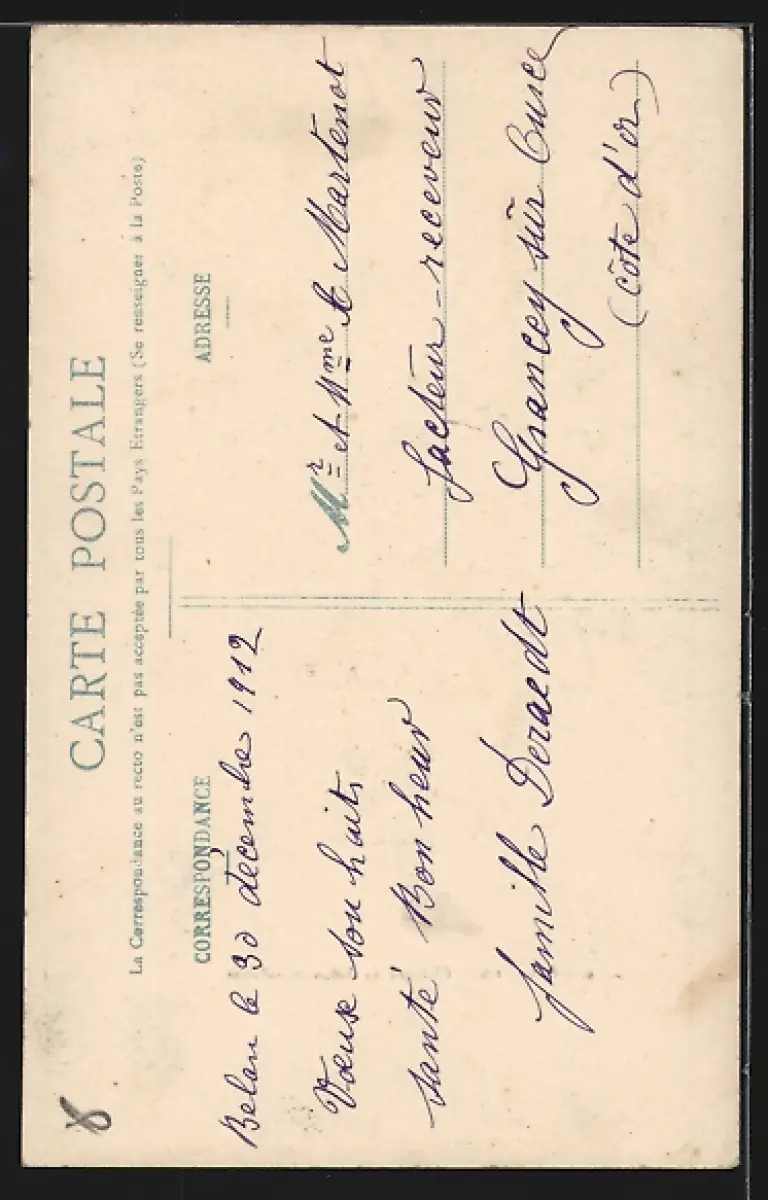 CARTE POSTALE
La Correspondance au recto n'est pas acceptée par tous les Pays Etrangers (Se renseigner à la Poste)
CORRESPONDANCE
Belan le 30 décembre 1912
Vœux souhaits
santé Bonheur
famille Deraedt
ADRESSE
Mr et Mme Martenot
facteur-receveur
Grancey sur Ource
(côte d'or)
8